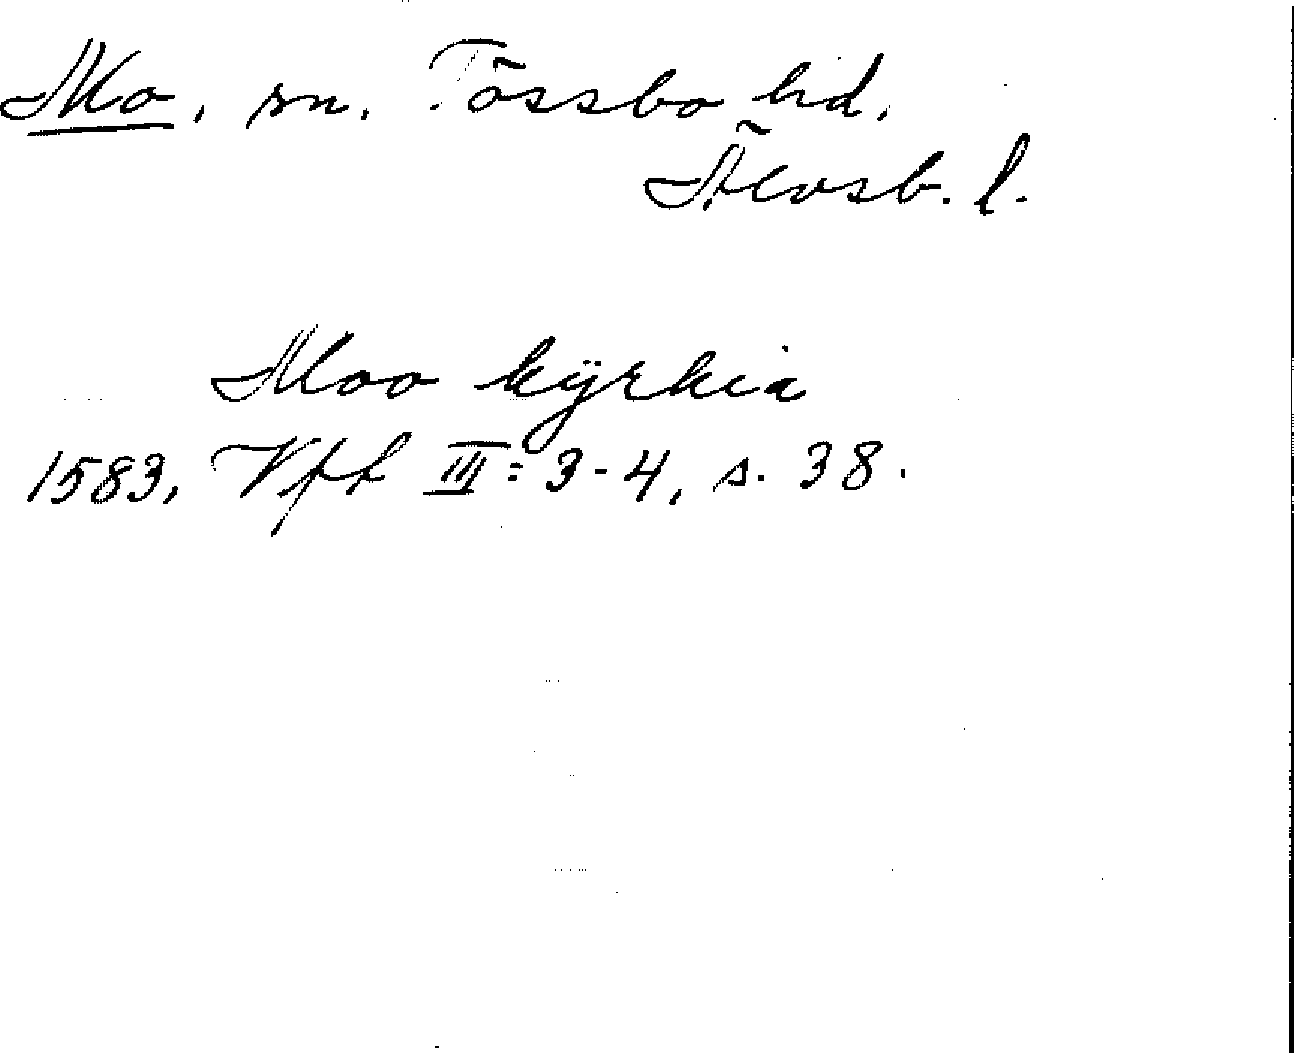 Mo, sn. Tössbo hd.
Älvsb. l.
Moo kÿrkia
1583, Vfl III: 3-4, s. 38.